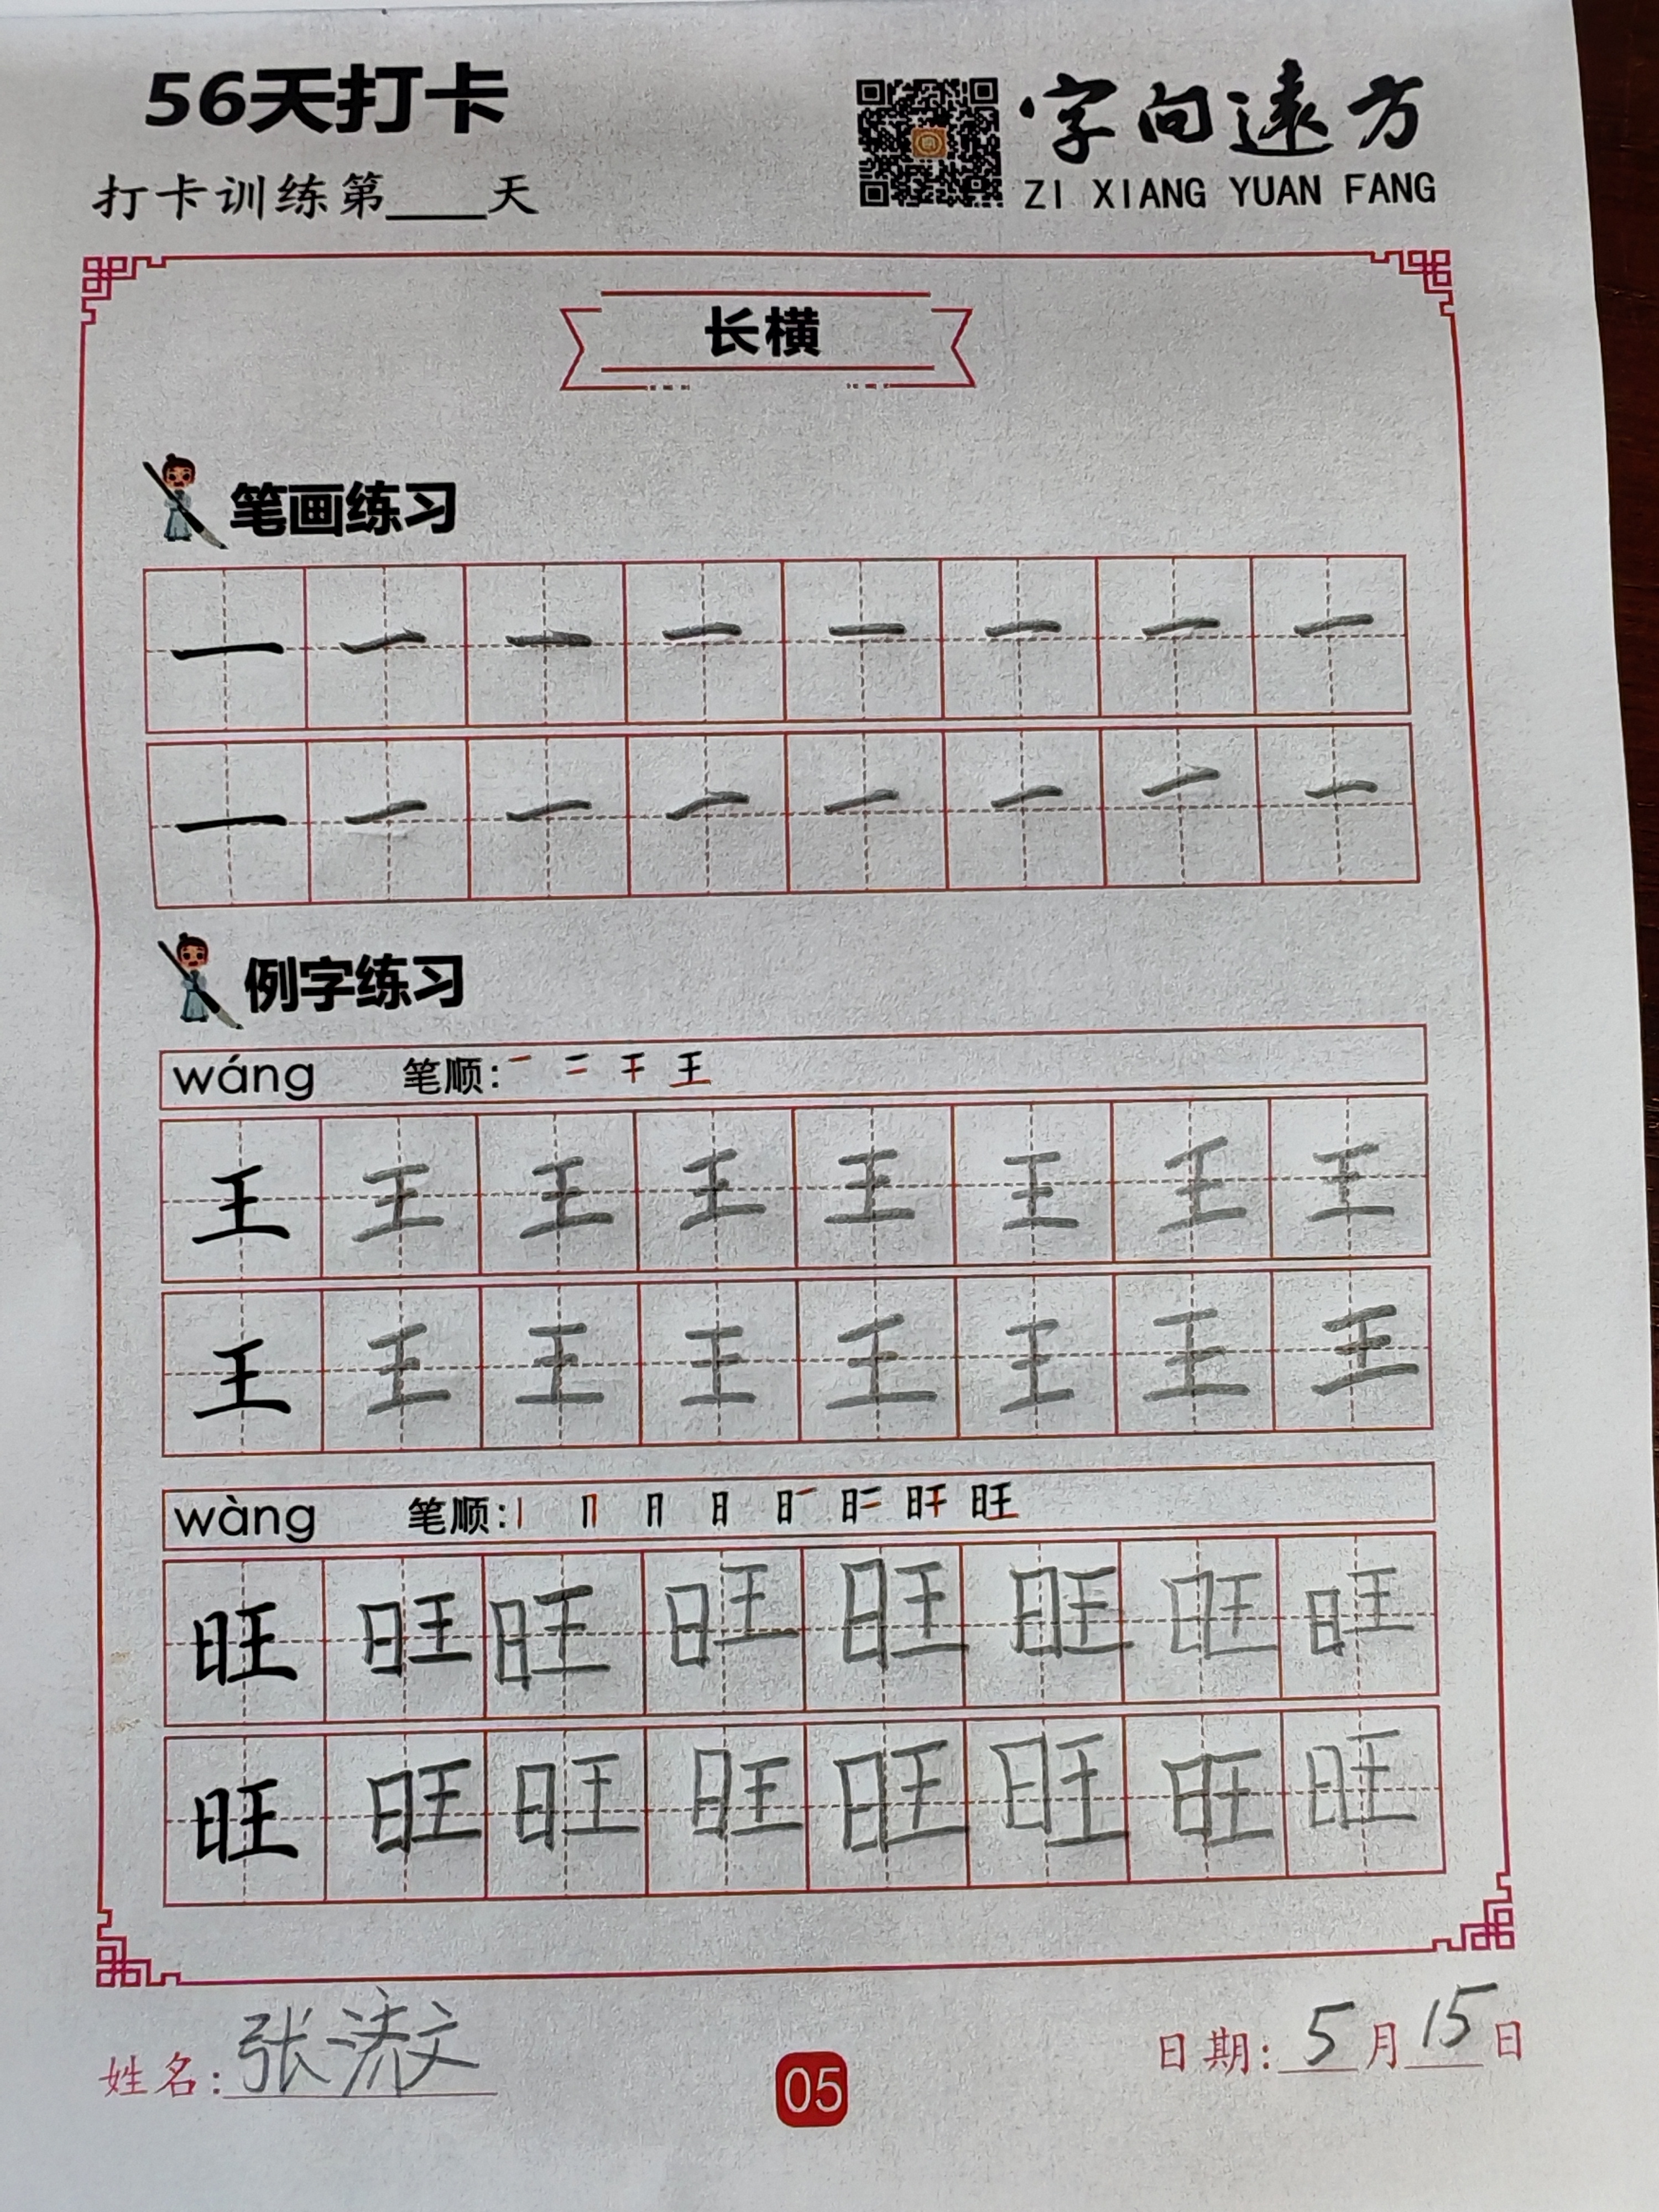 56天打卡
打卡训练第____天
字向遠方
ZI XIANG YUAN FANG
长横
笔画练习
一 一 一 一 一 一 一 一
一 一 一 一 一 一 一 一
例字练习
wáng 笔顺: 王
王 王 王 王 王 王 王 王
王 王 王 王 王 王 王 王
wàng 笔顺: 旺
旺 旺 旺 旺 旺 旺 旺 旺
旺 旺 旺 旺 旺 旺 旺 旺
姓名: 张 文
日期: 5月15日
05